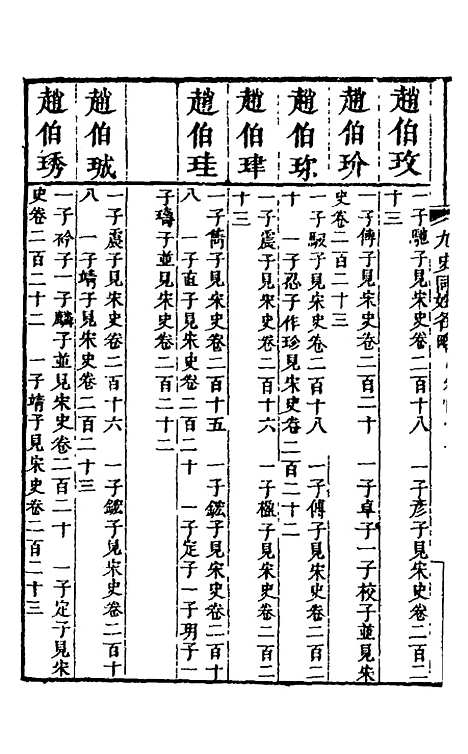 九史同姓名略
趙伯玫
一子馳子見宋史卷二百十八　一子彥子見宋史卷二百二
十三
趙伯玠
一子傳子見宋史卷二百二十　一子卓子一子校子並見宋
史卷二百二十三
趙伯珎
一子馭子見宋史卷二百十八　一子傳子見宋史卷二百二
十　一子忍子作珍見宋史卷二百二十二
趙伯珒
一子震子見宋史卷二百十六　一子楹子見宋史卷二百二
十三
趙伯珪
一子雋子見宋史卷二百十五　一子鋐子見宋史卷二百十
八　一子直子見宋史卷二百二十　一子定子一子玥子一
子璹子並見宋史卷二百二十二
趙伯珹
一子震子見宋史卷二百十六　一子鋐子見宋史卷二百十
八　一子靖子見宋史卷二百二十三
趙伯琇
一子衿子一子麟子並見宋史卷二百二十　一子定子見宋
史卷二百二十二　一子靖子見宋史卷二百二十三